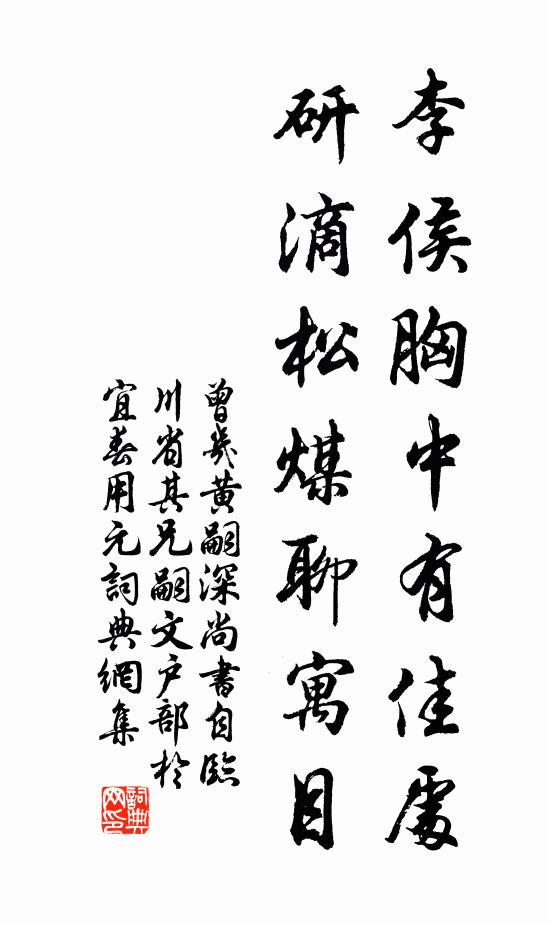 李侯胸中有佳處
研滴松煤聊寓目
曾幾黄嗣深尚書自臨
川省其兄嗣文户部於
宜春用元詞典網集
詞典网印